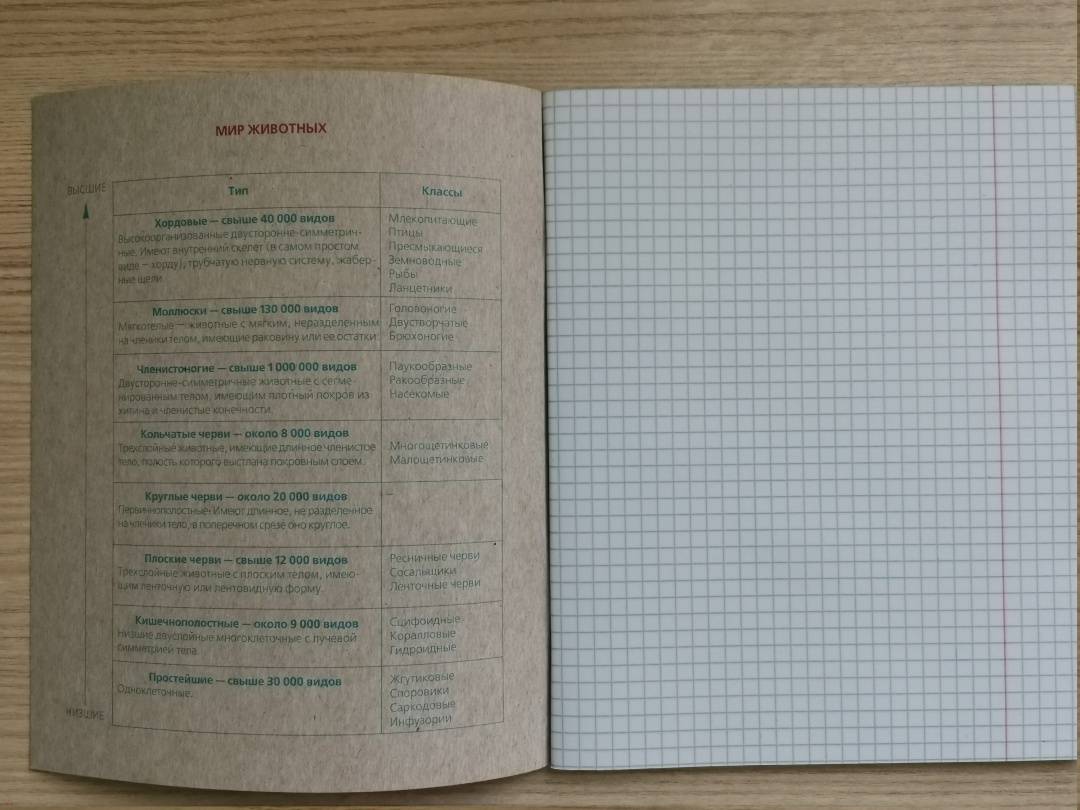 МИР ЖИВОТНЫХ
ВЫСШИЕ
Тип
Классы
Хордовые — свыше 40 000 видов
Высокоорганизованные двусторонне-симметрич-
ные. Имеют внутренний скелет (в самом простом
виде — хорду), трубчатую нервную систему, жабер-
ные щели.
Млекопитающие
Птицы
Пресмыкающиеся
Земноводные
Рыбы
Ланцетники
Моллюски — свыше 130 000 видов
Мягкотелые — животные с мягким, неразделенным
на членики телом, имеющие раковину или ее остатки.
Головоногие
Двустворчатые
Брюхоногие
Членистоногие — свыше 1 000 000 видов
Двусторонне-симметричные животные с сегме-
нированным телом, имеющим плотный покров из
хитина и членистые конечности.
Паукообразные
Ракообразные
Насекомые
Кольчатые черви — около 8 000 видов
Трехслойные животные, имеющие длинное членистое
тело, полость которого выстлана покровным слоем.
Многощетинковые
Малощетинковые
Круглые черви — около 20 000 видов
Первичнополостные. Имеют длинное, не разделенное
на членики тело, в поперечном срезе оно круглое.
Плоские черви — свыше 12 000 видов
Трехслойные животные с плоским телом, имею-
щим ленточную или лентовидную форму.
Ресничные черви
Сосальщики
Ленточные черви
Кишечнополостные — около 9 000 видов
Низшие двуслойные многоклеточные с лучевой
симметрией тела.
Сцифоидные
Коралловые
Гидроидные
Простейшие — свыше 30 000 видов
Одноклеточные.
Жгутиковые
Споровики
Саркодовые
Инфузории
НИЗШИЕ